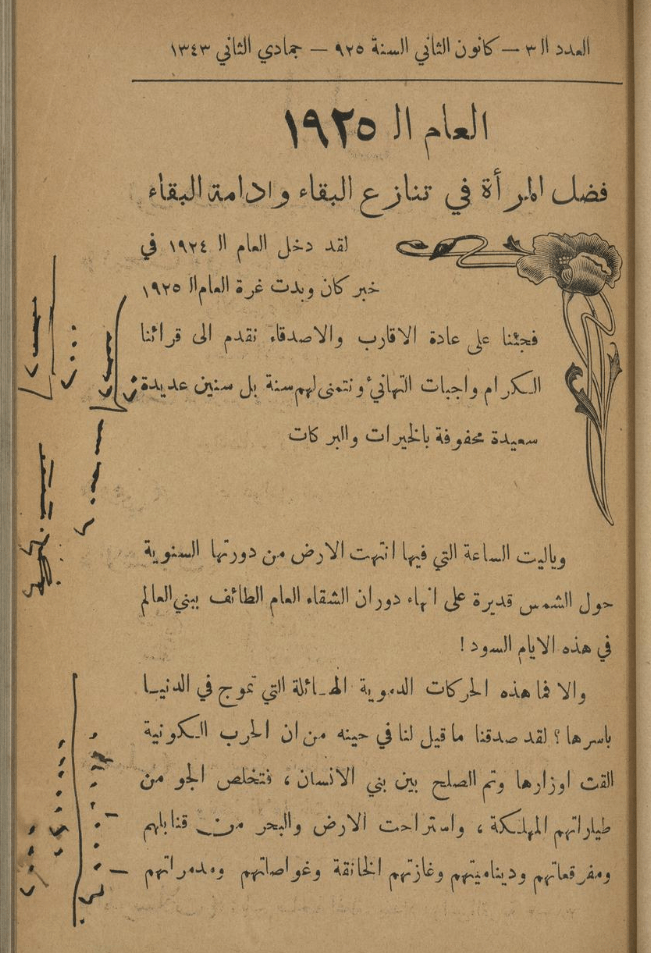 العدد ال ٣ — كانون الثاني السنة ٩٢٥ — جمادي الثاني ١٣٤٣
العام ال ١٩٢٥
فضل المرأة في تنازع البقاء وادامة البقاء
لقد دخل العام ال ١٩٢٤ في
خبر كان وبدت غرة العام ال ١٩٢٥
فجئنا على عادة الاقارب والاصدقاء نقدم الى قرائنا
الكرام واجبات التهانيء ونتمنى لهم سنة بل سنين عديدة
سعيدة محفوفة بالخيرات والبركات
وياليت الساعة التي فيها انتهت الارض من دورتها السنوية
حول الشمس قديرة على انهاء دوران الشقاء العام الطائف ببني العالم
في هذه الايام السود !
والا فما هذه الحركات الدموية الهائلة التي تموج في الدنيا
باسرها ؟ لقد صدقنا ما قيل لنا في حينه من ان الحرب الكونية
القت اوزارها وتم الصلح بين بني الانسان ، فتخلص الجو من
طياراتهم المهلكة ، واستراحت الارض والبحر من قنابلهم
ومفرقعاتهم وديناميتهم وغازتهم الخانقة وغواصاتهم ومدمراتهم